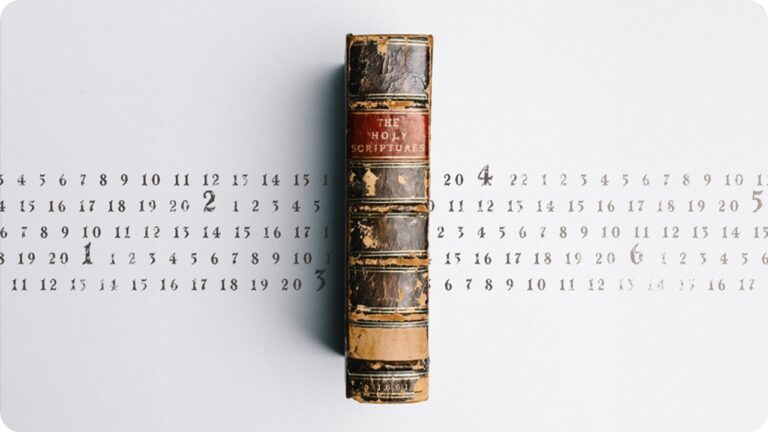 THE
HOLY
SCRIPTURES
4 5 6 7 8 9 10 11 12 13 14 15 16 20 4 22 1 2 3 4 5 6 7 8 9 10
15 16 17 18 19 20 2 1 2 3 4 5 11 12 13 14 15 16 17 18 19 20 5
6 7 8 9 10 11 12 13 14 15 16 2 3 4 5 6 7 8 9 10 11 12 13 14 15
19 20 1 1 2 3 4 5 6 7 8 9 10 14 15 16 17 18 19 20 6 1 2 3 4 5
11 12 13 14 15 16 17 18 19 20 3 6 7 8 9 10 11 12 13 14 15 16 17